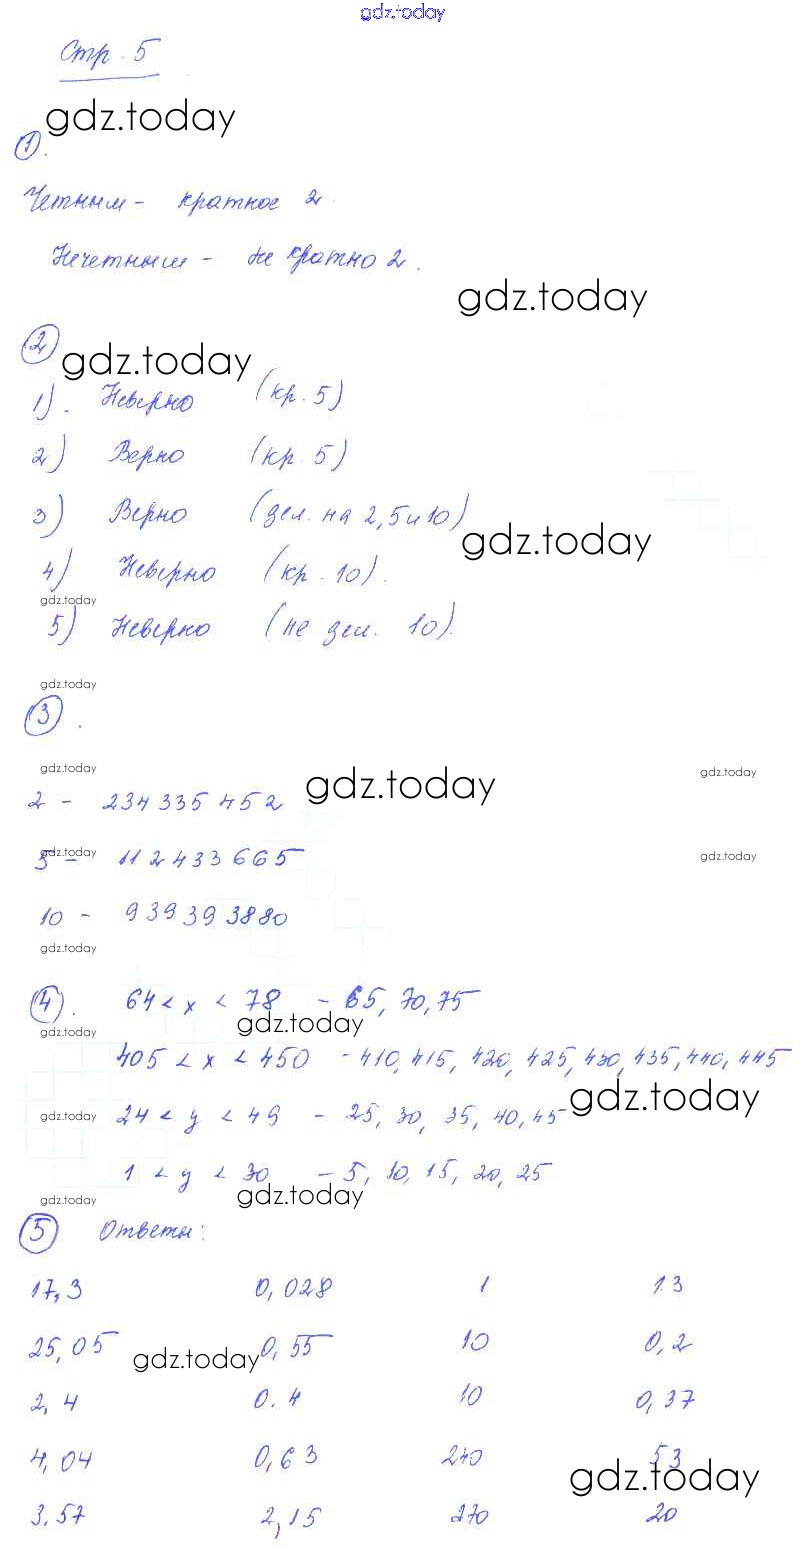 gdz.today
Стр. 5
gdz.today
1.
Четным - кратное 2.
Нечетным - не кратно 2.
gdz.today
2
gdz.today
1). Неверно (кр. 5)
2) Верно (кр. 5)
3) Верно (дел. на 2,5 и 10)
gdz.today
4) Неверно (кр. 10).
gdz.today
5) Неверно (не дел. 10).
gdz.today
3.
gdz.today gdz.today gdz.today
2 - 234 335 452
gdz.today gdz.today
5 - 112 433 665
10 - 939 39 3880
gdz.today
4). 64 < x < 78 - 65, 70, 75
gdz.today gdz.today
405 < x < 450 - 410, 415, 420, 425, 430, 435, 440, 445
gdz.today gdz.today
24 < y < 49 - 25, 30, 35, 40, 45
1 < y < 30 - 5, 10, 15, 20, 25
gdz.today gdz.today
5 Ответы:
17,3 0,028 1 13
25,05 0,55 10 0,2
gdz.today
2,4 0.4 10 0,37
4,04 0,63 240 53
gdz.today
3.57 2,15 270 20